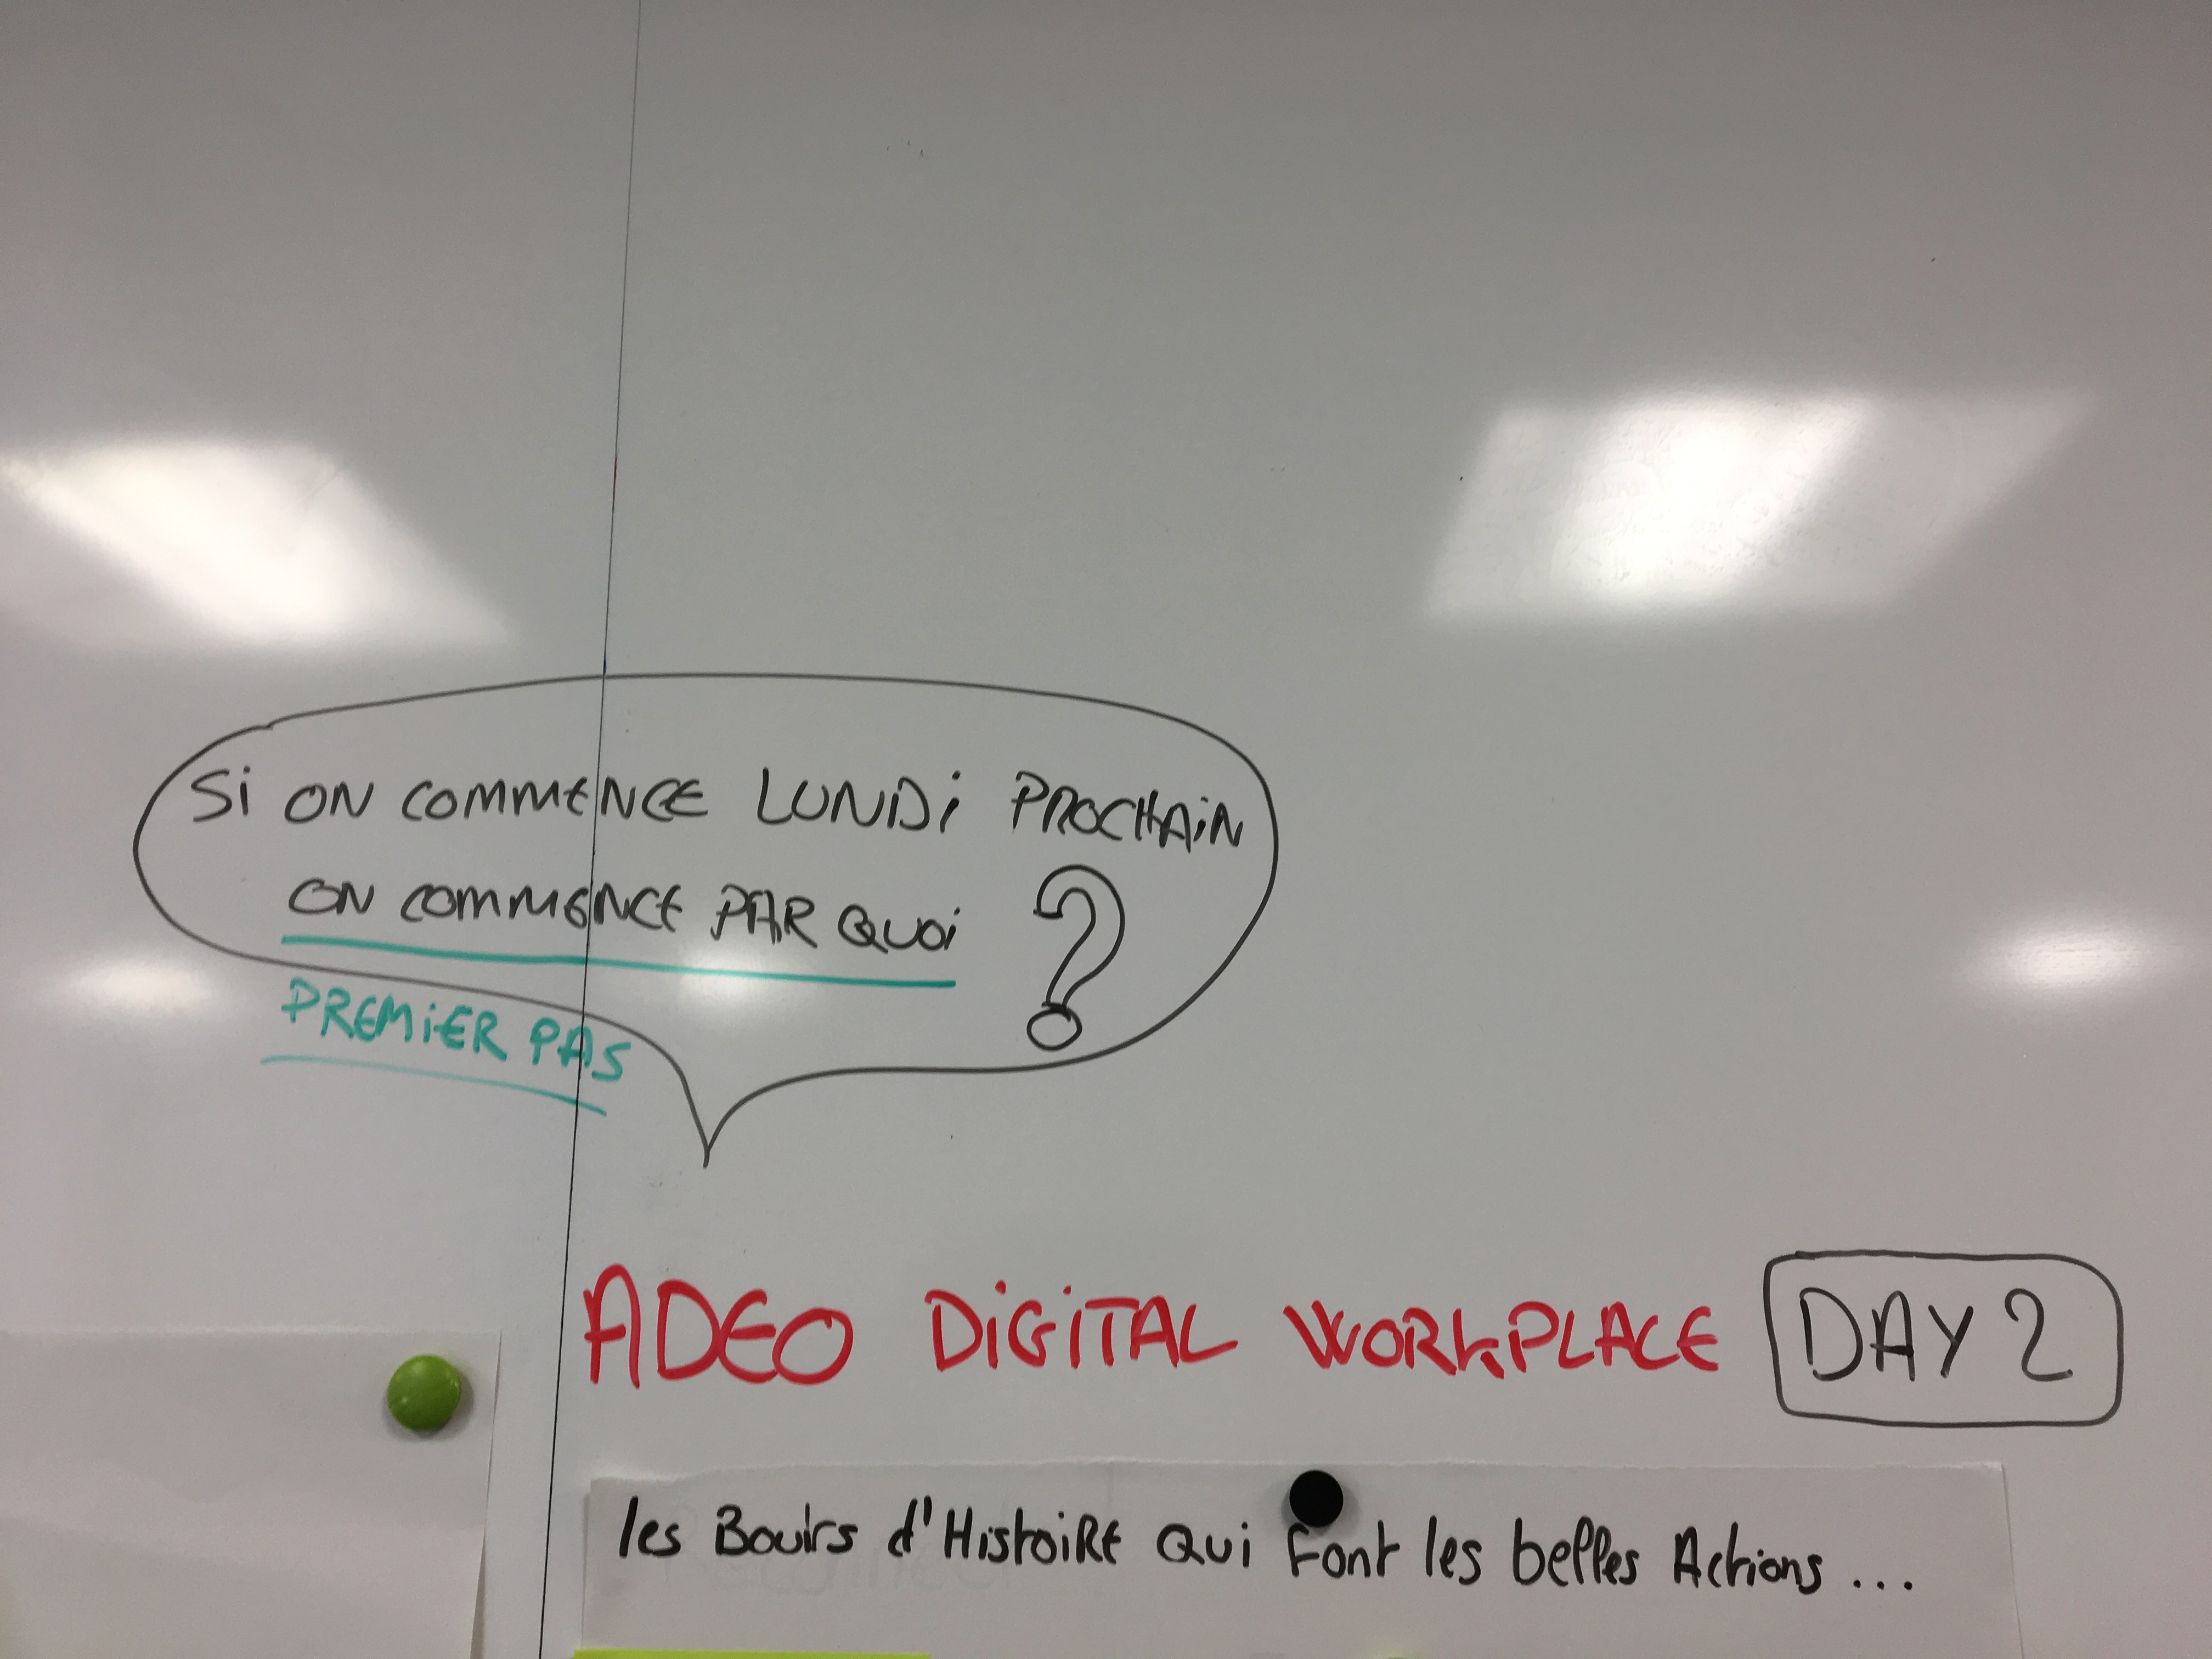 Si ON COMMENCE LUNDi PROCHAiN
ON COMMENCE PAR QUOi ?
PREMiER PAS
ADEO DiGiTAL WORKPLACE DAY 2
les Bouts d'HistoiRE Qui Font les belles Actions ...